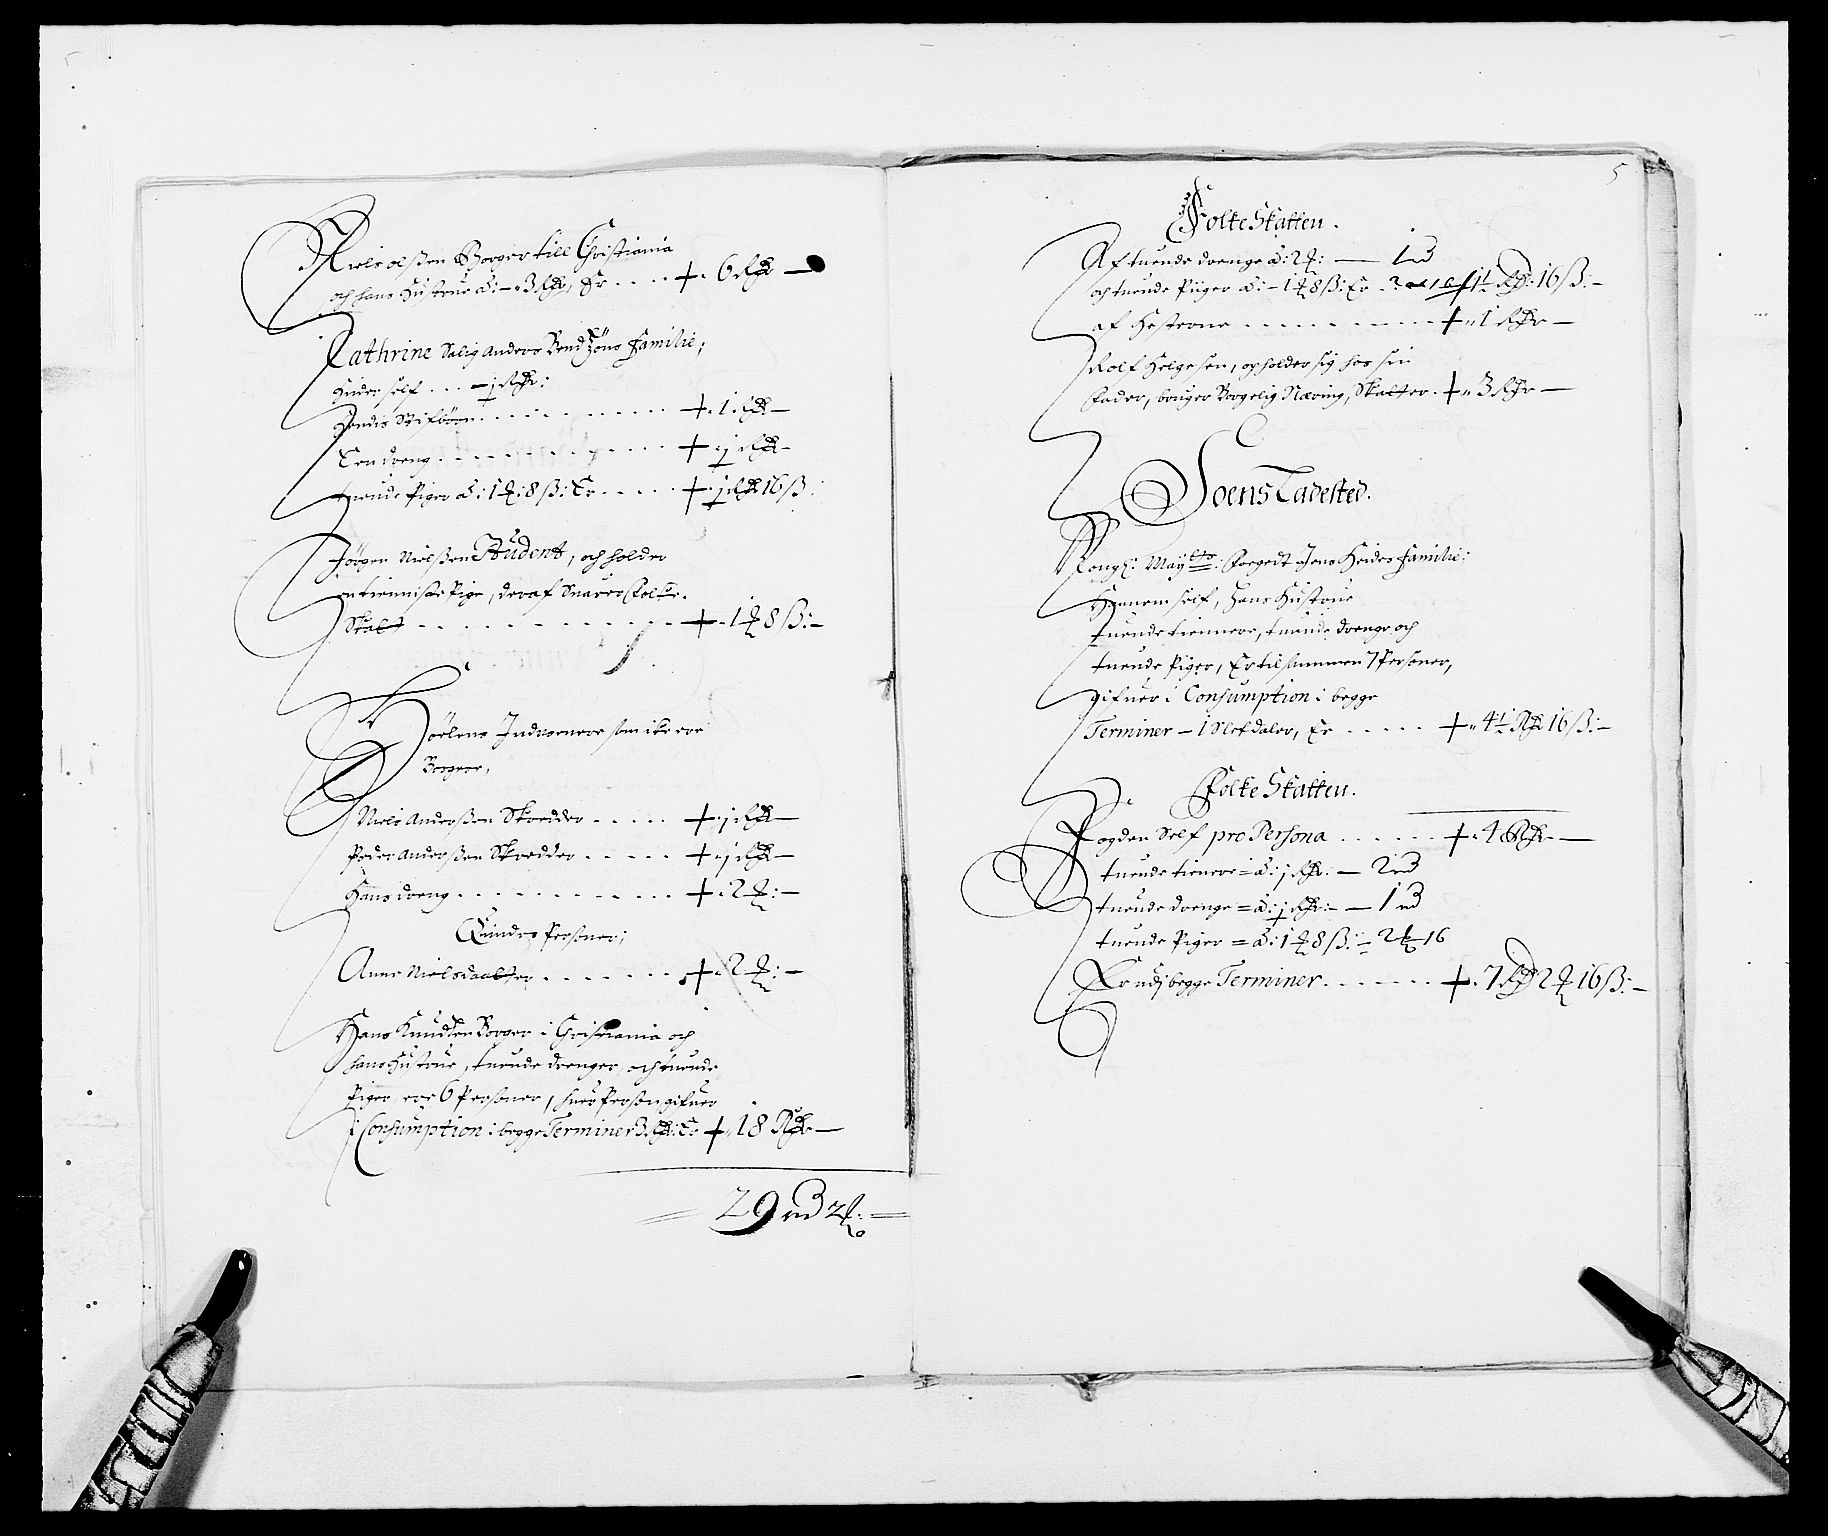 Niels olßen Borger till Christiania
och hans Hustrue â: 3 Rdr, Er .... 6 Rdr —
Cathrine Salig Anders Bendzöns Familie;
Hinder self ... ½ Rdr:
Hendis Stifbörn ........ 1 Rdr —
Een dreng ........ ½ Rdr —
tuende Piger â: 1 ℔: 8 ß: Er ..... ½ Rdr 16 ß:
Jörgen Nielßen Student, och holder
en tienniste Pige, deraf Suarer Folke
Skatt ........ 1 ℔ 8 ß: —
Hölens Induonere som icke ere
Borgere,
Niels Anderßen Skredder ..... ½ Rdr —
Peder Anderßen Skredder ..... ½ Rdr —
Hans dreng ........ 2 ℔: —
Quindes Persner;
Anne Nielsdaatter ....... 2 ℔: —
Hans Knudßen Borger i Christiania och
hans Hustrue, tuende drenger, och tuende
Piger, ere 6 Personer, huer Person gifuer
i Consumption i begge Terminer 3 Rdr: Er 18 Rdr —
29 rd 2 ℔:
5
Folke Skatten.
Af tuende drenge â: 2 ℔: — 1 rd
och tuende Piiger â: 1 ℔ 8 ß: Er 1½ Rd: 16 ß: —
af Hesterne ........ 1 Rdr —
Rolf Helgesen, opholder sig hos sin
Fader, bruger Borgelig Næring, Skatter . 3 Rdr —
Soens Ladested.
Kongl: Maytts: Foegedt Jens Heides Familie:
Hannem self, hans Hustrue
tuende tiennere, tuende drenge och
tuende Piger, Er tilsammen 7 Personer,
gifuer i Consumption i begge
Terminer — 1 Slet daler, Er ..... 4½ Rdr 16 ß: —
Folke Skatten.
Fogden Self pro Persona ...... 4 Rdr —
tuende tienere = â: ½ Rdr: — 2 rd
tuende drenge = â: ½ Rdr: — 1 rd
tuende Piger = â: 1 ℔ 8 ß: — 2 ℔ 16
Er udj begge Terminer ....... 7 Rd 2 ℔ 16 ß: —